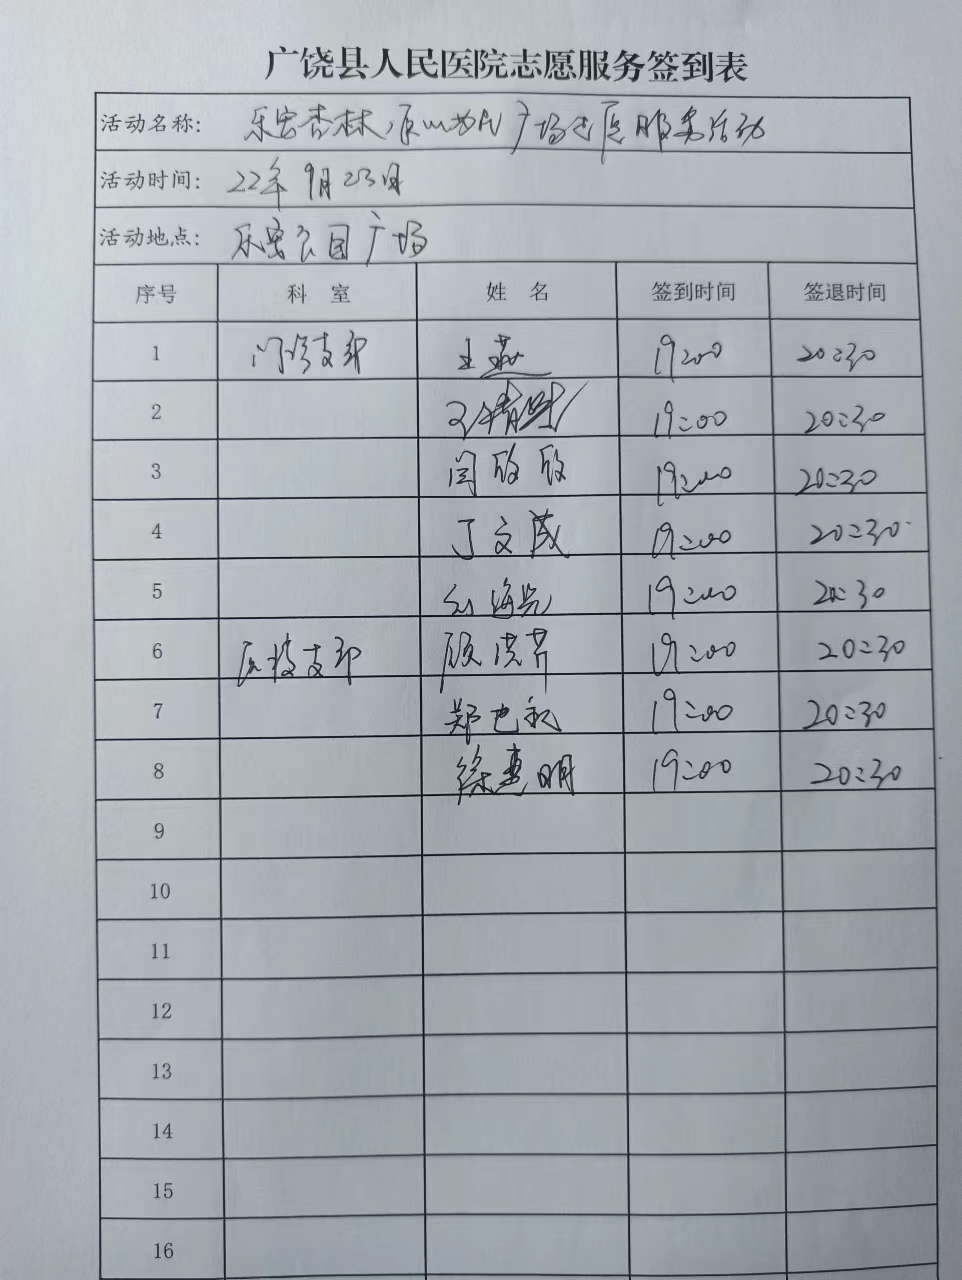 广饶县人民医院志愿服务签到表
活动名称: 乐安杏林 广场志愿服务活动
活动时间: 22年9月23日
活动地点: 乐安公园广场
序号 科 室 姓 名 签到时间 签退时间
1 门诊支部 王燕 19:00 20:30
2 19:00 20:30
3 闫欣欣 19:00 20:30
4 丁文茂 19:00 20:30
5 刘海光 19:00 20:30
6 医技支部 顾洪芹 19:00 20:30
7 郑也 19:00 20:30
8 徐惠明 19:00 20:30
9
10
11
12
13
14
15
16